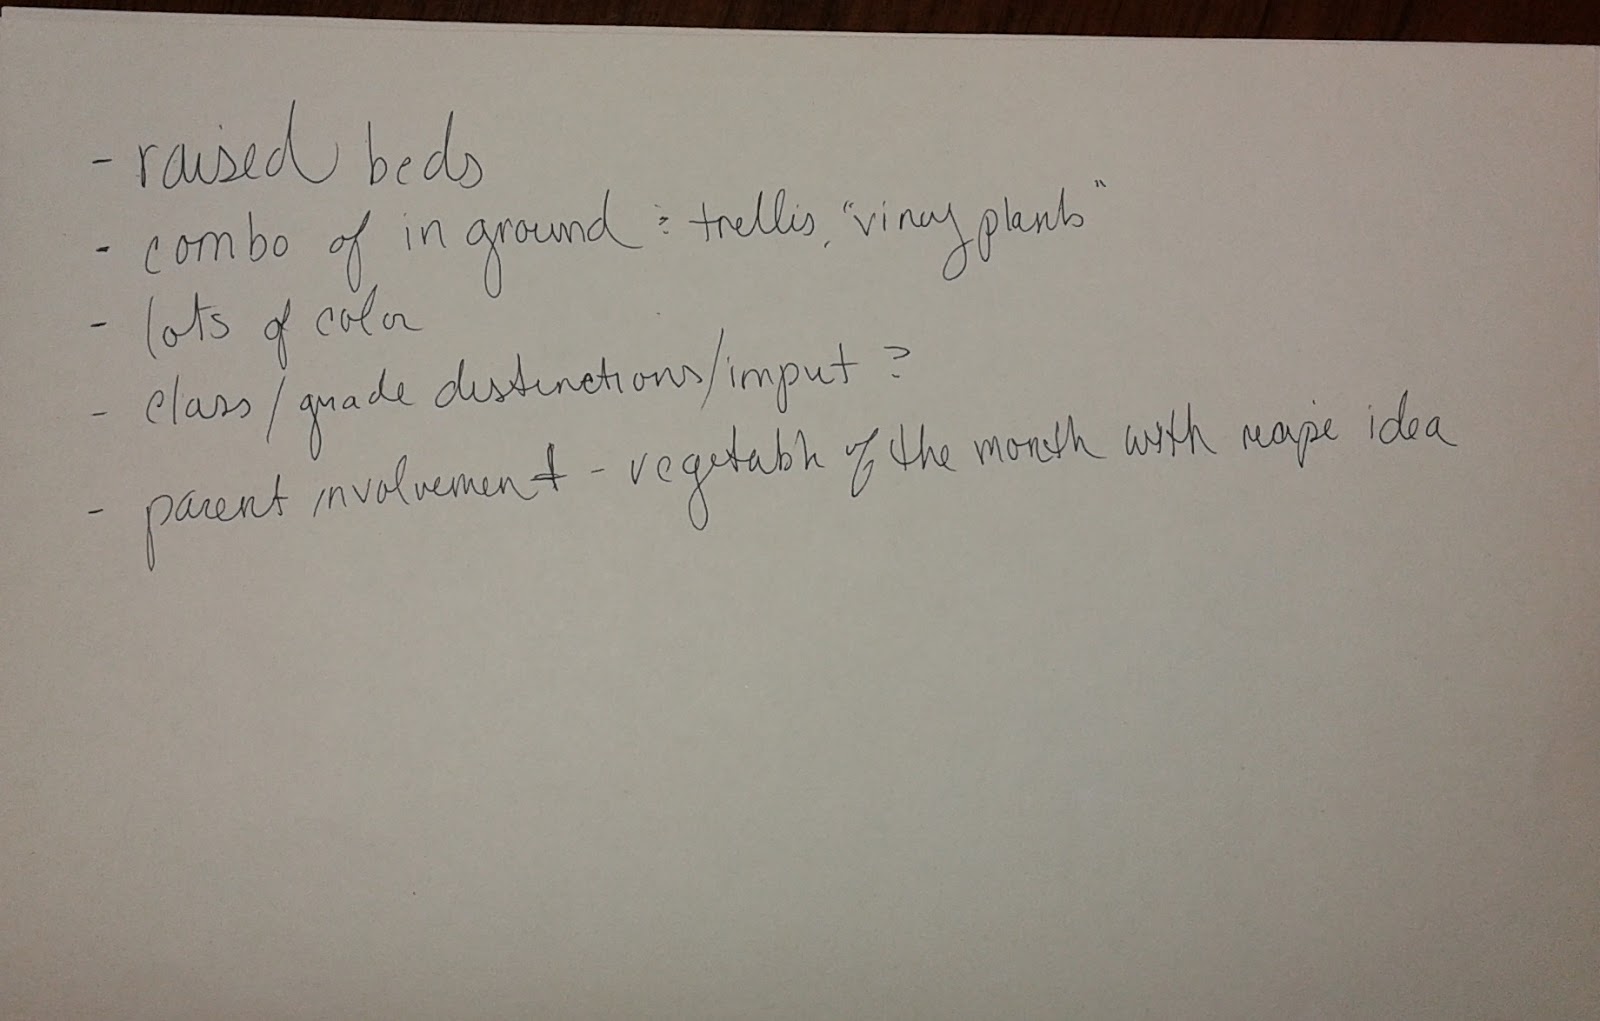 - raised beds
- combo of in ground : trellis, "viney plants"
- lots of color
- class/grade distinctions/imput ?
- parent involvement - vegetable of the month with recipe idea